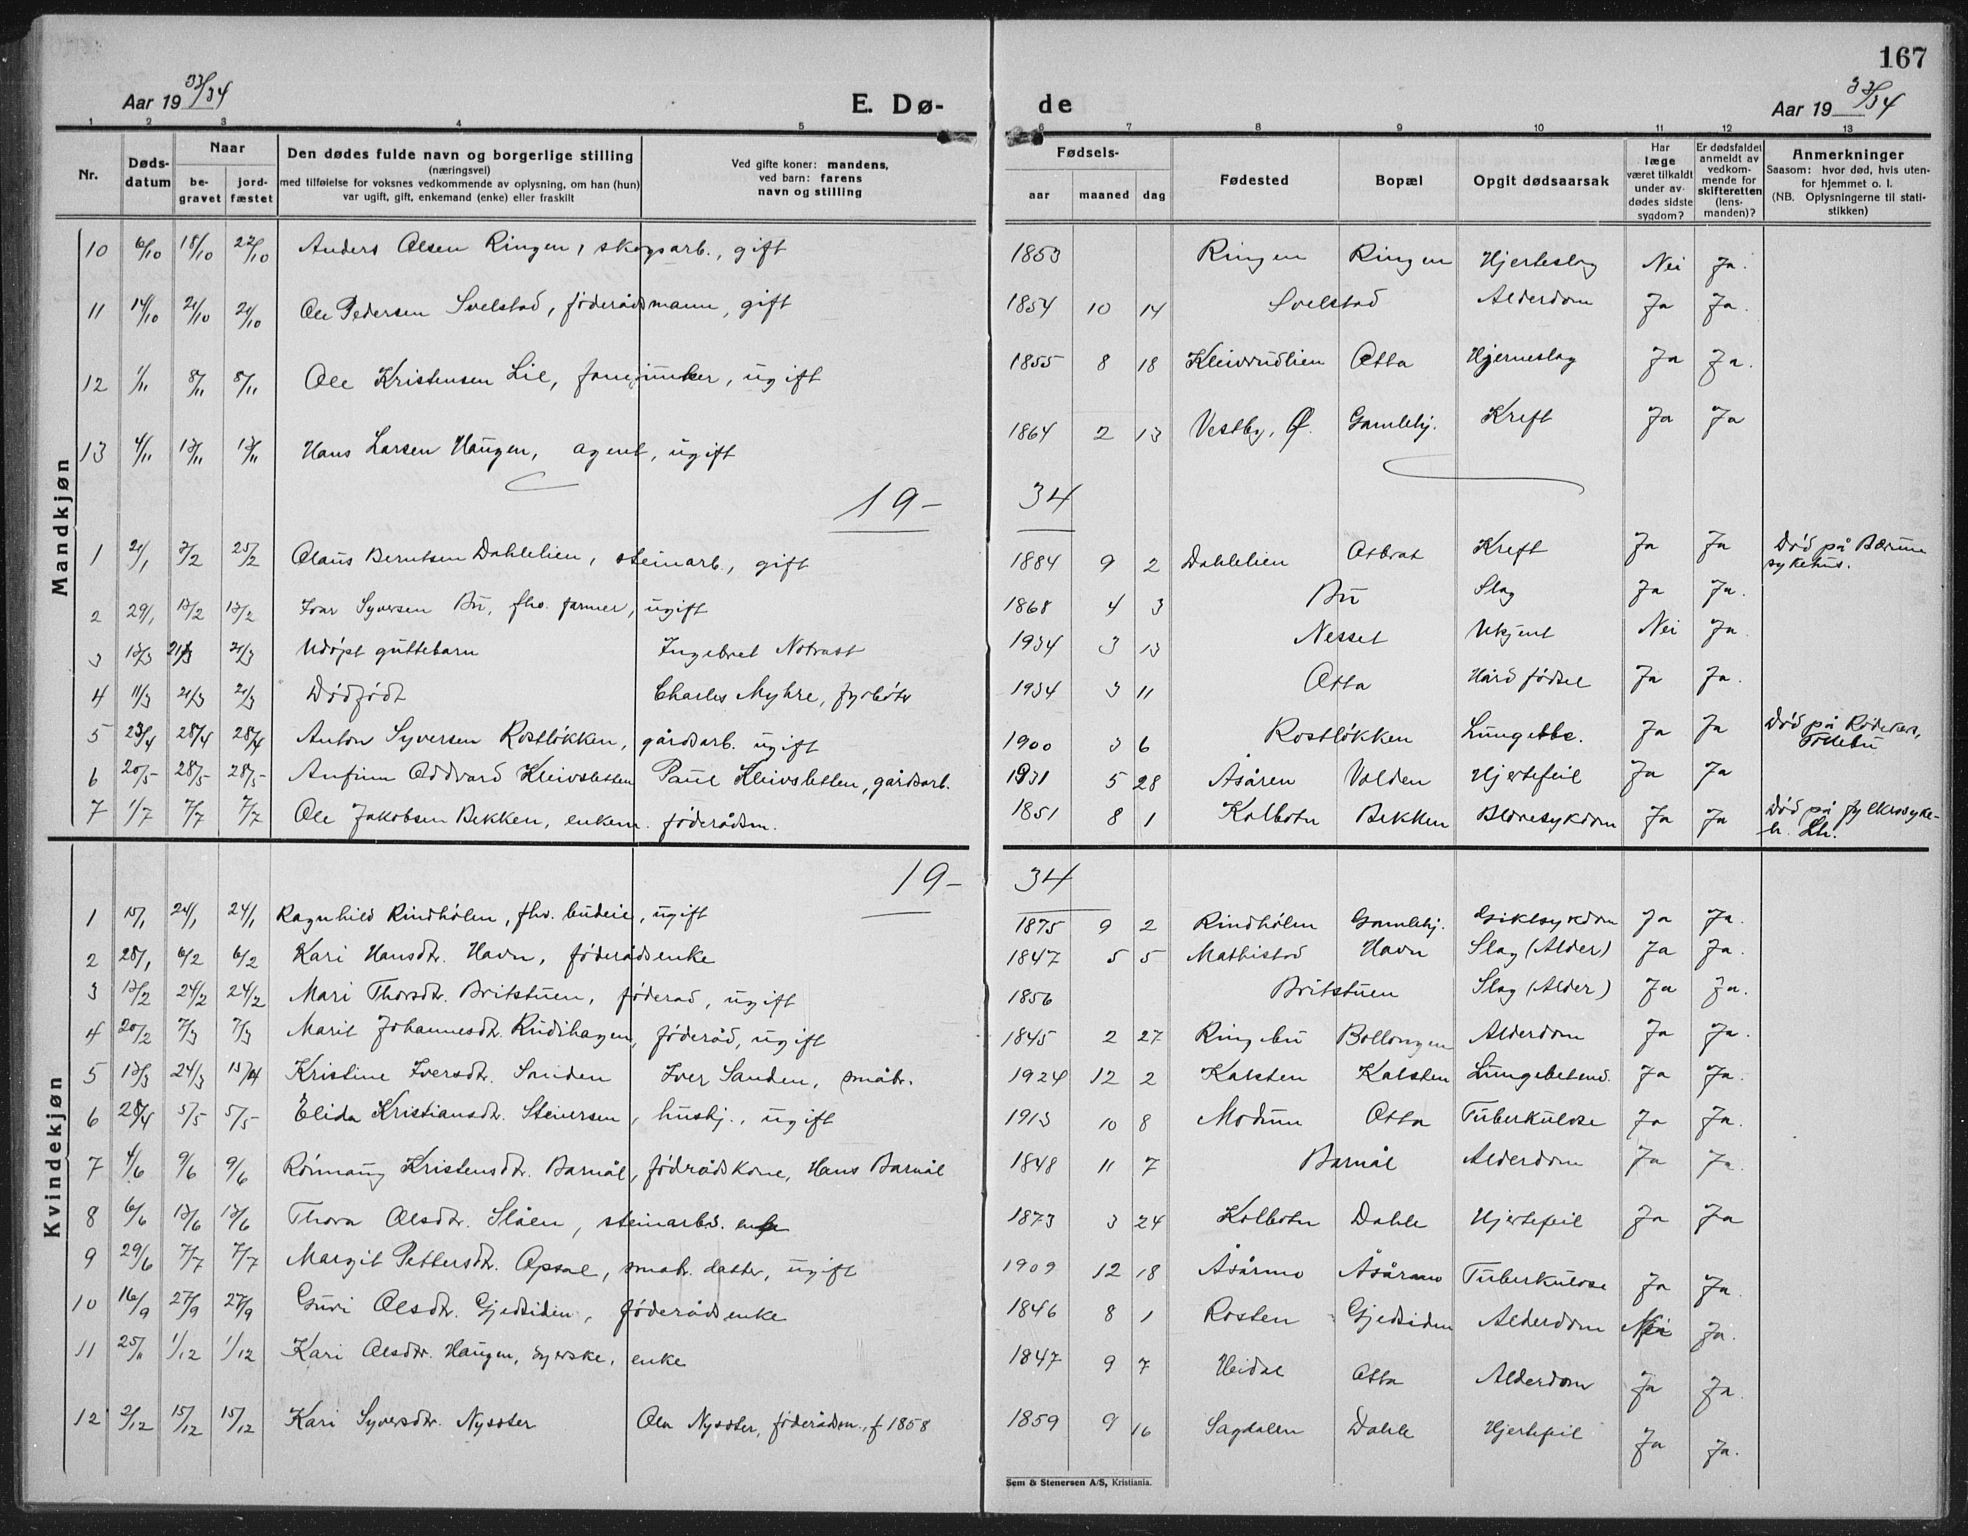 167
Aar 19 33/34 E. Dø- de Aar 19 33/34
1 2 3 4 5 6 7 8 9 10 11 12 13
Nr. Døds-datum Naar be-gravet jord-fæstet Den dødes fulde navn og borgerlige stilling (næringsvei) med tilføielse for voksnes vedkommende av oplysning, om han (hun) var ugift, gift, enkemand (enke) eller fraskilt Ved gifte koner: mandens, ved barn: farens navn og stilling Fødsels- aar maaned dag Fødested Bopæl Opgit dødsaarsak Har læge været tilkaldt under av-dødes sidste sygdom? Er dødsfaldet anmeldt av vedkom-mende for skifteretten (lens-manden)? Anmerkninger Saasom: hvor død, hvis uten-for hjemmet o. l. (NB. Oplysningerne til stati-stikken)
Mandkjøn
10 6/10 18/10 22/10 Anders Olsen Ringen, skogsarb., gift 1853 Ringen Ringen Hjerteslag Nei Ja.
11 14/10 21/10 21/10 Ole Pedersen Svelstad, föderådsmann, gift 1854 10 14 Svelstad Alderdom Ja Ja.
12 1/11 8/11 8/11 Ole Kristensen Lie, fanejunker, ugift 1855 8 18 Kleivrudlien Otta Hjerneslag Ja Ja.
13 4/11 13/11 13/11 Hans Larsen Haugen, agent, ugift 1864 2 13 Vestby, Ø. Gamlehj. Kreft Ja Ja
19- 34
1 21/1 3/2 25/2 Olaus Berntsen Dahlelien, steinarb., gift 1884 9 2 Dahlelien Otbrat Kreft Ja Ja Död på Bærum sykehus.
2 29/1 13/2 13/2 Ivar Syversen Bu, fhv. farmer, ugift 1868 4 3 Bu Slag Ja Ja.
3 13/3 21/3 21/3 Udøpt guttebarn Ingebret Notvast 1934 3 13 Nesset Ukjent Nei Ja.
4 11/3 21/3 21/3 Dödfödt Charles Myhre, fyrböter 1934 3 11 Otta Hård födsel Ja Ja.
5 23/4 28/4 28/4 Anton Syversen Rostløkken, gårdsarb. ugift 1900 3 6 Rostløkken Lungetbc. Ja Ja Död på
6 20/5 28/5 28/5 Anfinn Oddvard Kleivsletten Paul Kleivsletten, gårdsarb. 1931 5 28 Åsåren Volden Hjertefeil Ja Ja
7 1/7 7/7 7/7 Ole Jakobsen Bekken, enkem. föderådsm. 1851 8 1 Kolbotn Bekken Blæresykdom Ja Ja Död på fylkessyke-h. Lh.
Kvindekjøn
19- 34
1 15/1 24/1 24/1 Ragnhild Rindhølen, fhv. budeie, ugift 1875 9 2 Rindhølen Gamlehj. Giktsykdom Ja Ja.
2 28/1 6/2 6/2 Kari Hansdtr. Havn, föderådsenke 1847 5 5 Mathistad Havn Slag (Alder) Ja Ja.
3 13/2 24/2 24/2 Mari Thorsdtr. Britstuen, föderåd, ugift 1856 Britstuen Slag (Alder) Ja Ja.
4 20/2 7/3 7/3 Marit Johannesdtr. Rudihagen, föderåd, ugift 1845 2 27 Ringebu Bollongen Alderdom Ja Ja.
5 13/3 24/3 15/4 Kristine Iversdtr. Sanden Iver Sanden, småbr. 1924 12 2 Kalsten Kalsten Lungebetend. Ja Ja.
6 28/4 5/5 5/5 Elida Kristiansdtr. Stenersen, hushj., ugift 1913 10 8 Modum Otta Tuberkulose Ja Ja.
7 4/6 9/6 9/6 Rönnaug Kristensdtr. Barnål, födrådskone, Hans Barnål 1848 11 7 Barnål Alderdom Ja Ja.
8 6/6 13/6 13/6 Thora Olsdtr. Slåen, steinarbs. enke 1873 3 24 Kolbotn Dahle Hjertefeil Ja Ja
9 29/6 7/7 7/7 Margit Pettersdtr. Opsal, småbr. datter, ugift 1909 12 18 Åsårmo Åsårmo Tuberkulose Ja Ja.
10 16/9 27/9 27/9 Guri Olsdtr. Gjedsiden, föderådsenke 1846 8 1 Rosten Gjedsiden Alderdom Nei Ja.
11 25/11 1/12 1/12 Kari Olsdtr. Haugen, syerske, enke 1847 9 7 Heidal Otta Alderdom Ja Ja.
12 2/12 15/12 15/12 Kari Syversdtr. Nysæter Ola Nysæter, föderådsm., f 1858 1859 9 16 Sagdalen Dahle Hjertefeil Ja Ja.
Sem & Stenersen A/S, Kristiania.